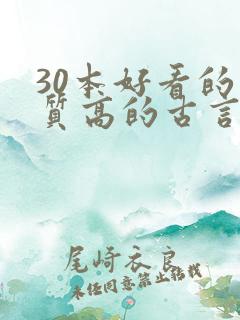 30本好看的
质高的古言
尾崎衣良
未经同意禁止转载